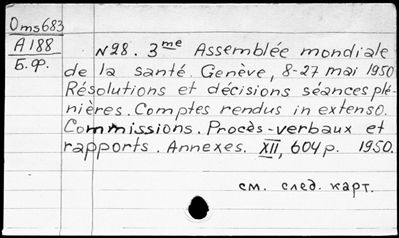 Oms683
A188
Б.ф.
N28. 3me Assemblée mondiale
de la santé. Genève, 8-27 mai 1950
Résolutions et décisions séances plé-
nières. Comptes rendus in extenso.
Commissions. Procès-verbaux et
rapports. Annexes. XII, 604 p. 1950.
см. след. карт.